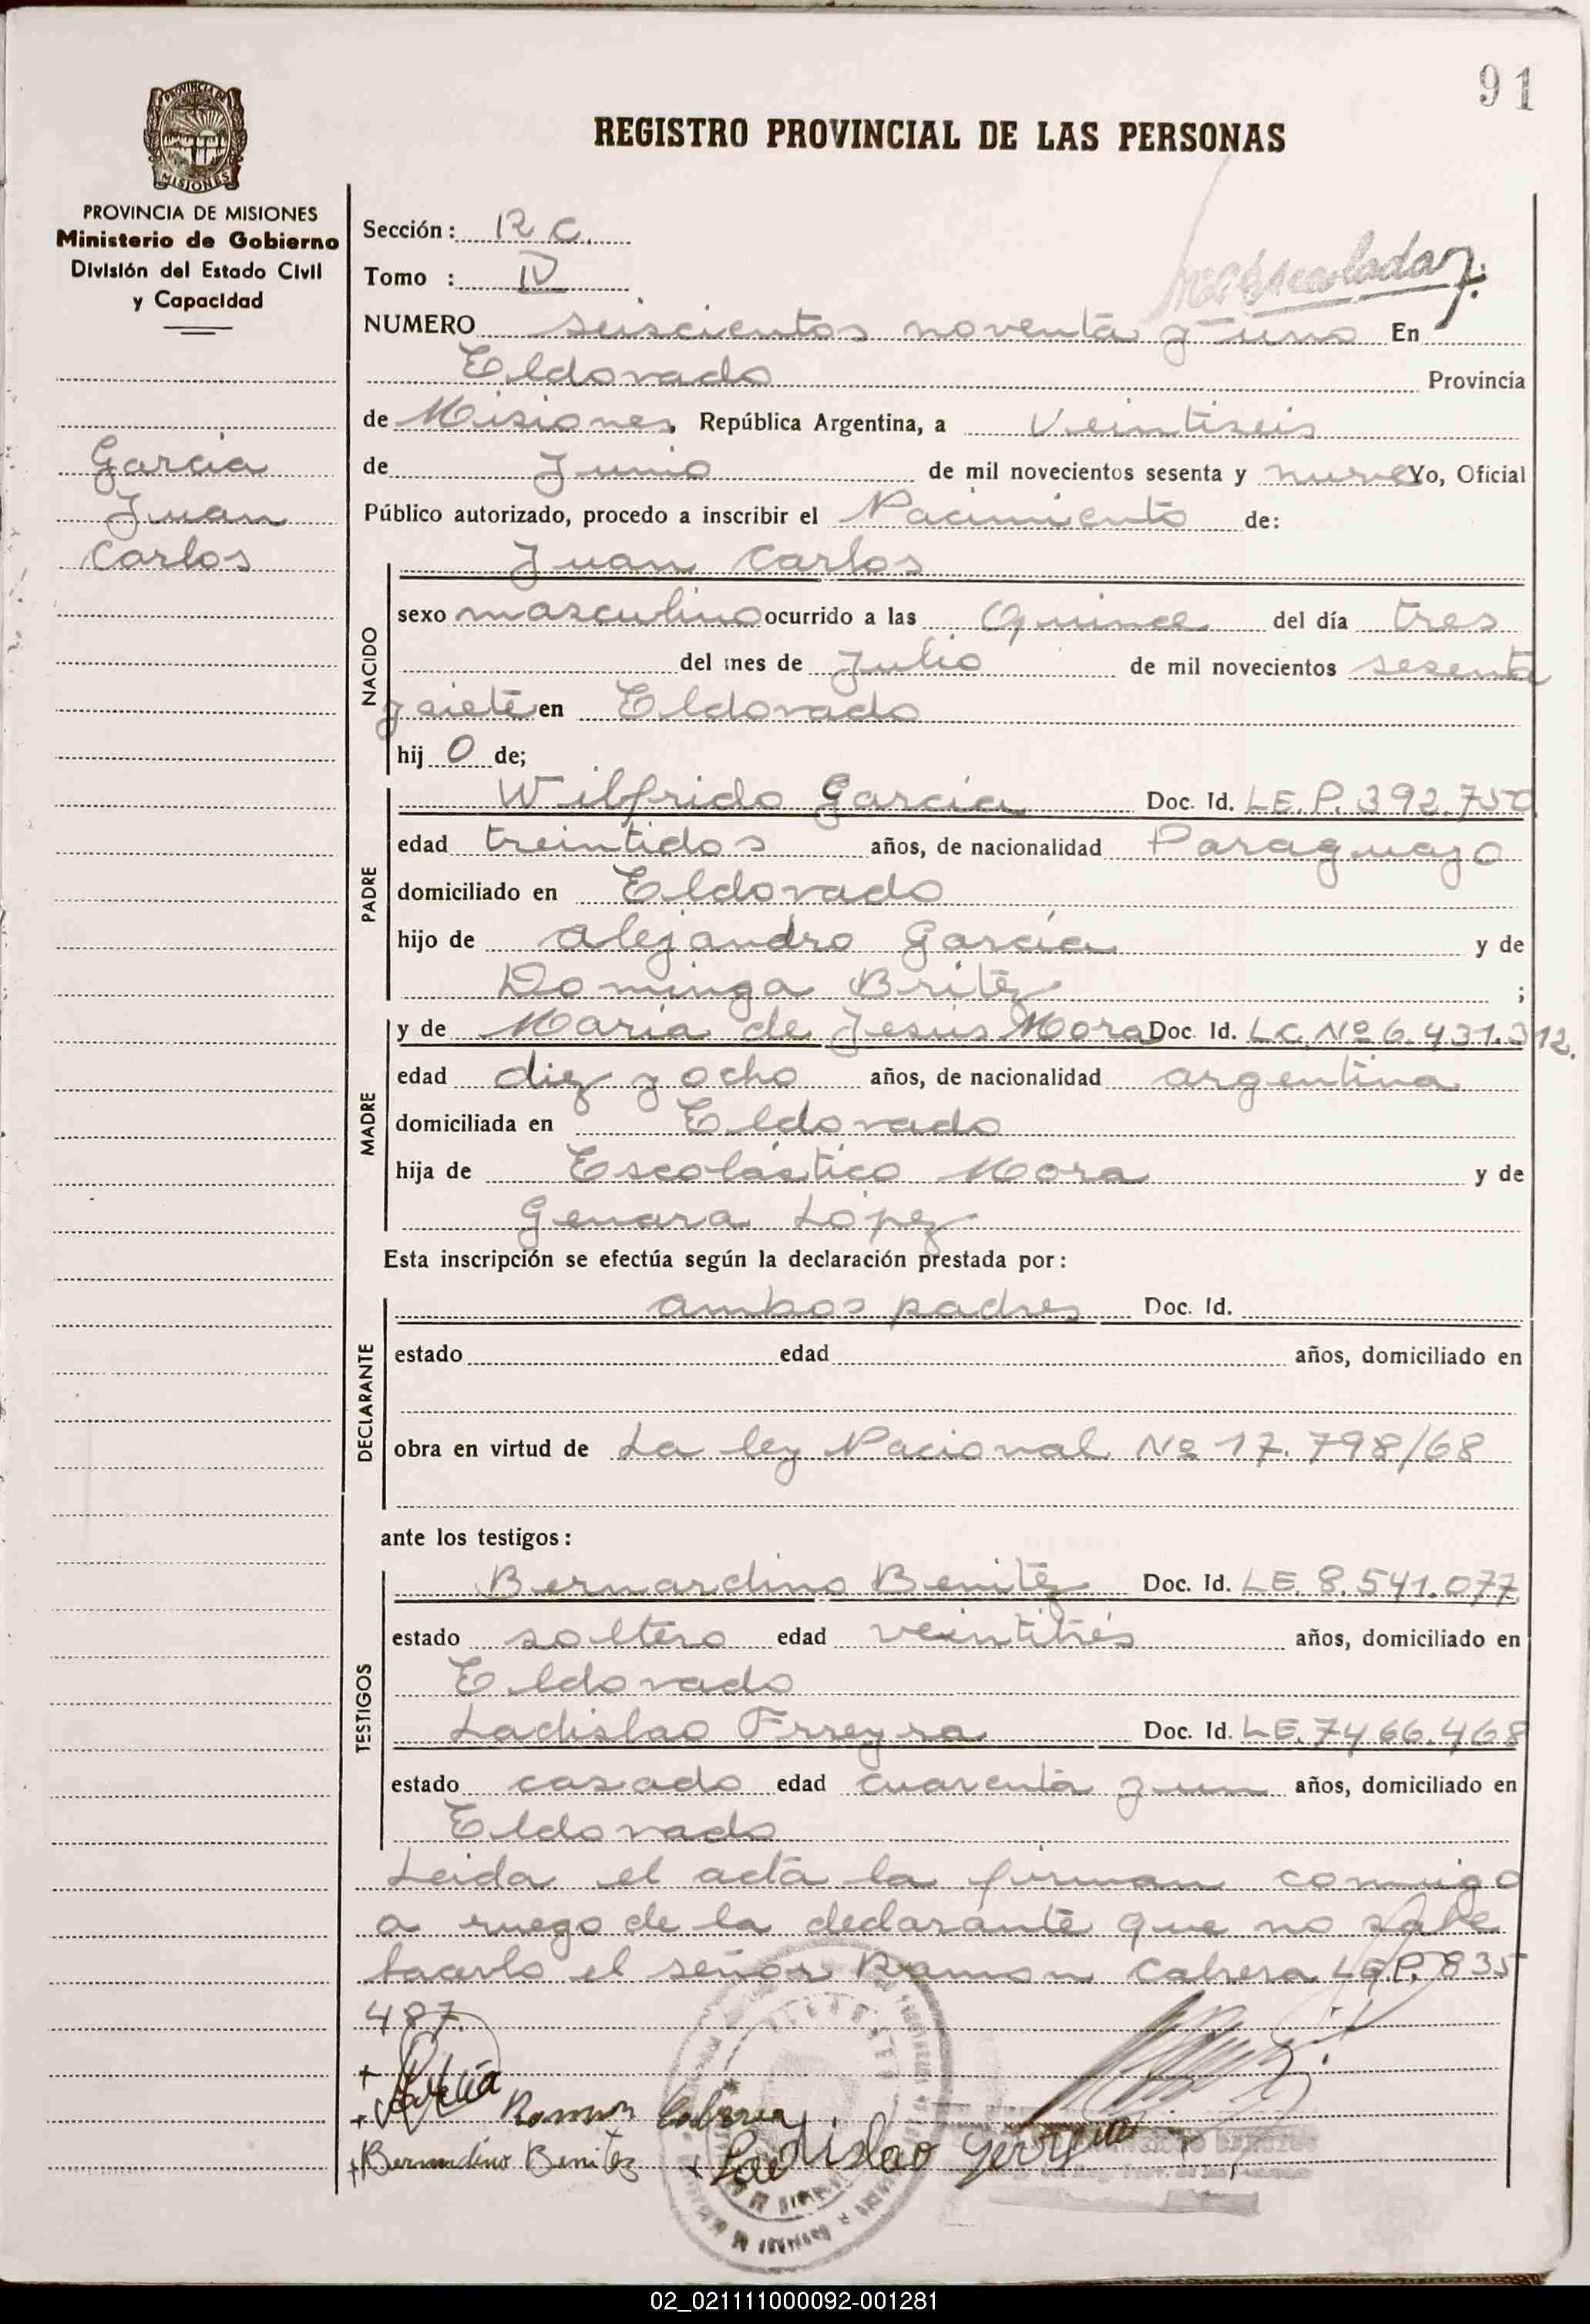 91
REGISTRO PROVINCIAL DE LAS PERSONAS
PROVINCIA DE MISIONES
PROVINCIA DE MISIONES
Ministerio de Gobierno
División del Estado Civil
y Capacidad
García
Juan
Carlos
Sección: R C.
Tomo : IV
NUMERO seiscientos noventa y uno En
Eldorado Provincia
de Misiones, República Argentina, a Veintiseis
de Junio de mil novecientos sesenta y nueve Yo, Oficial
Público autorizado, procedo a inscribir el Nacimiento de:
NACIDO
Juan Carlos
sexo masculino ocurrido a las Quince del día tres
del mes de Julio de mil novecientos sesenta
y siete en Eldorado
hij o de;
PADRE
Wilfrido García Doc. Id. L.E.P. 392.750
edad treintidos años, de nacionalidad Paraguayo
domiciliado en Eldorado
hijo de Alejandro García y de
Dominga Britez ;
MADRE
y de María de Jesús Mora Doc. Id. L.C. Nº 6.431.312.
edad diez y ocho años, de nacionalidad argentina
domiciliada en Eldorado
hija de Escolástico Mora y de
Genara López
Esta inscripción se efectúa según la declaración prestada por:
DECLARANTE
ambos padres Doc. Id.
estado edad años, domiciliado en
obra en virtud de La ley Nacional Nº 17.798/68
ante los testigos:
TESTIGOS
Bernardino Benitez Doc. Id. LE. 8.541.077
estado soltero edad veintitrés años, domiciliado en
Eldorado
Ladislao Frreyra Doc. Id. LE. 7466.468
estado casado edad cuarenta y un años, domiciliado en
Eldorado
Leida el acta la firman conmigo
a ruego de la declarante que no sabe
hacerlo el señor Ramon Cabrera L.E.P. 835
487.
Ramon Cabrera
+ Bernardino Benitez + Ladislao
02_021111000092-001281